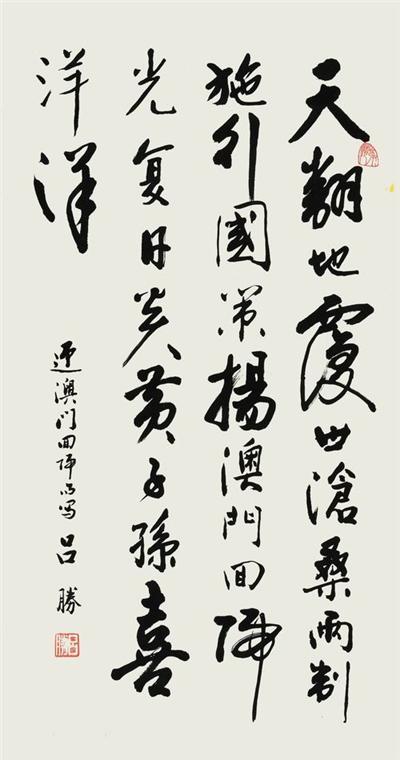 天翻地覆世滄桑兩制
施行國策揚澳門回歸
光复日炎黄子孫喜
洋洋
迎澳门回歸写吕勝